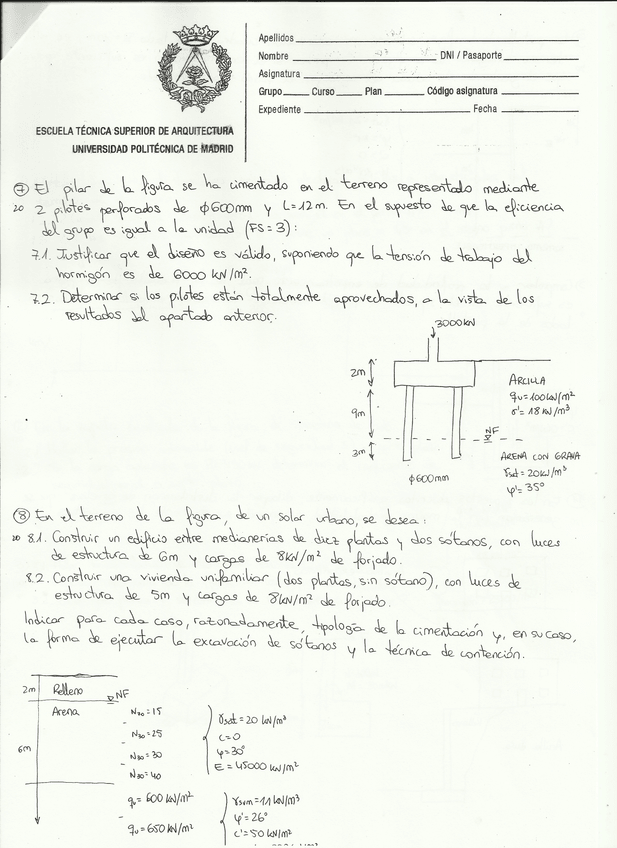 Apellidos
Nombre DNI / Pasaporte
Asignatura
Grupo Curso Plan Código asignatura
Expediente Fecha
ESCUELA TÉCNICA SUPERIOR DE ARQUITECTURA
UNIVERSIDAD POLITÉCNICA DE MADRID
⑦ El pilar de la figura se ha cimentado en el terreno representado mediante
20 2 pilotes perforados de ϕ600mm y L=12m. En el supuesto de que la eficiencia
del grupo es igual a la unidad (FS=3):
7.1. Justificar que el diseño es válido, suponiendo que la tensión de trabajo del
hormigón es de 6000 kN/m².
7.2. Determinar si los pilotes están totalmente aprovechados, a la vista de los
resultados del apartado anterior.
3000kN
2m
ARCILLA
qu=100kN/m²
σ'=18kN/m³
9m
NF
3m
ARENA CON GRAVA
γsat=20kN/m³
φ'=35°
ϕ600mm
⑧ En el terreno de la figura, de un solar urbano, se desea:
20 8.1. Construir un edificio entre medianerías de diez plantas y dos sótanos, con luces
de estructura de 6m y cargas de 8kN/m² de forjado.
8.2. Construir una vivienda unifamiliar (dos plantas, sin sótano), con luces de
estructura de 5m y cargas de 8kN/m² de forjado.
Indicar para cada caso, razonadamente, tipología de la cimentación y, en su caso,
la forma de ejecutar la excavación de sótanos y la técnica de contención.
2m Relleno NF
Arena
N30=15
N30=25
N30=30
N30=40
6m
γsat=20 kN/m³
c=0
φ=30°
E=45000 kN/m²
qu=600 kN/m²
qu=650 kN/m²
γsum=11 kN/m³
φ'=26°
c'=50 kN/m²